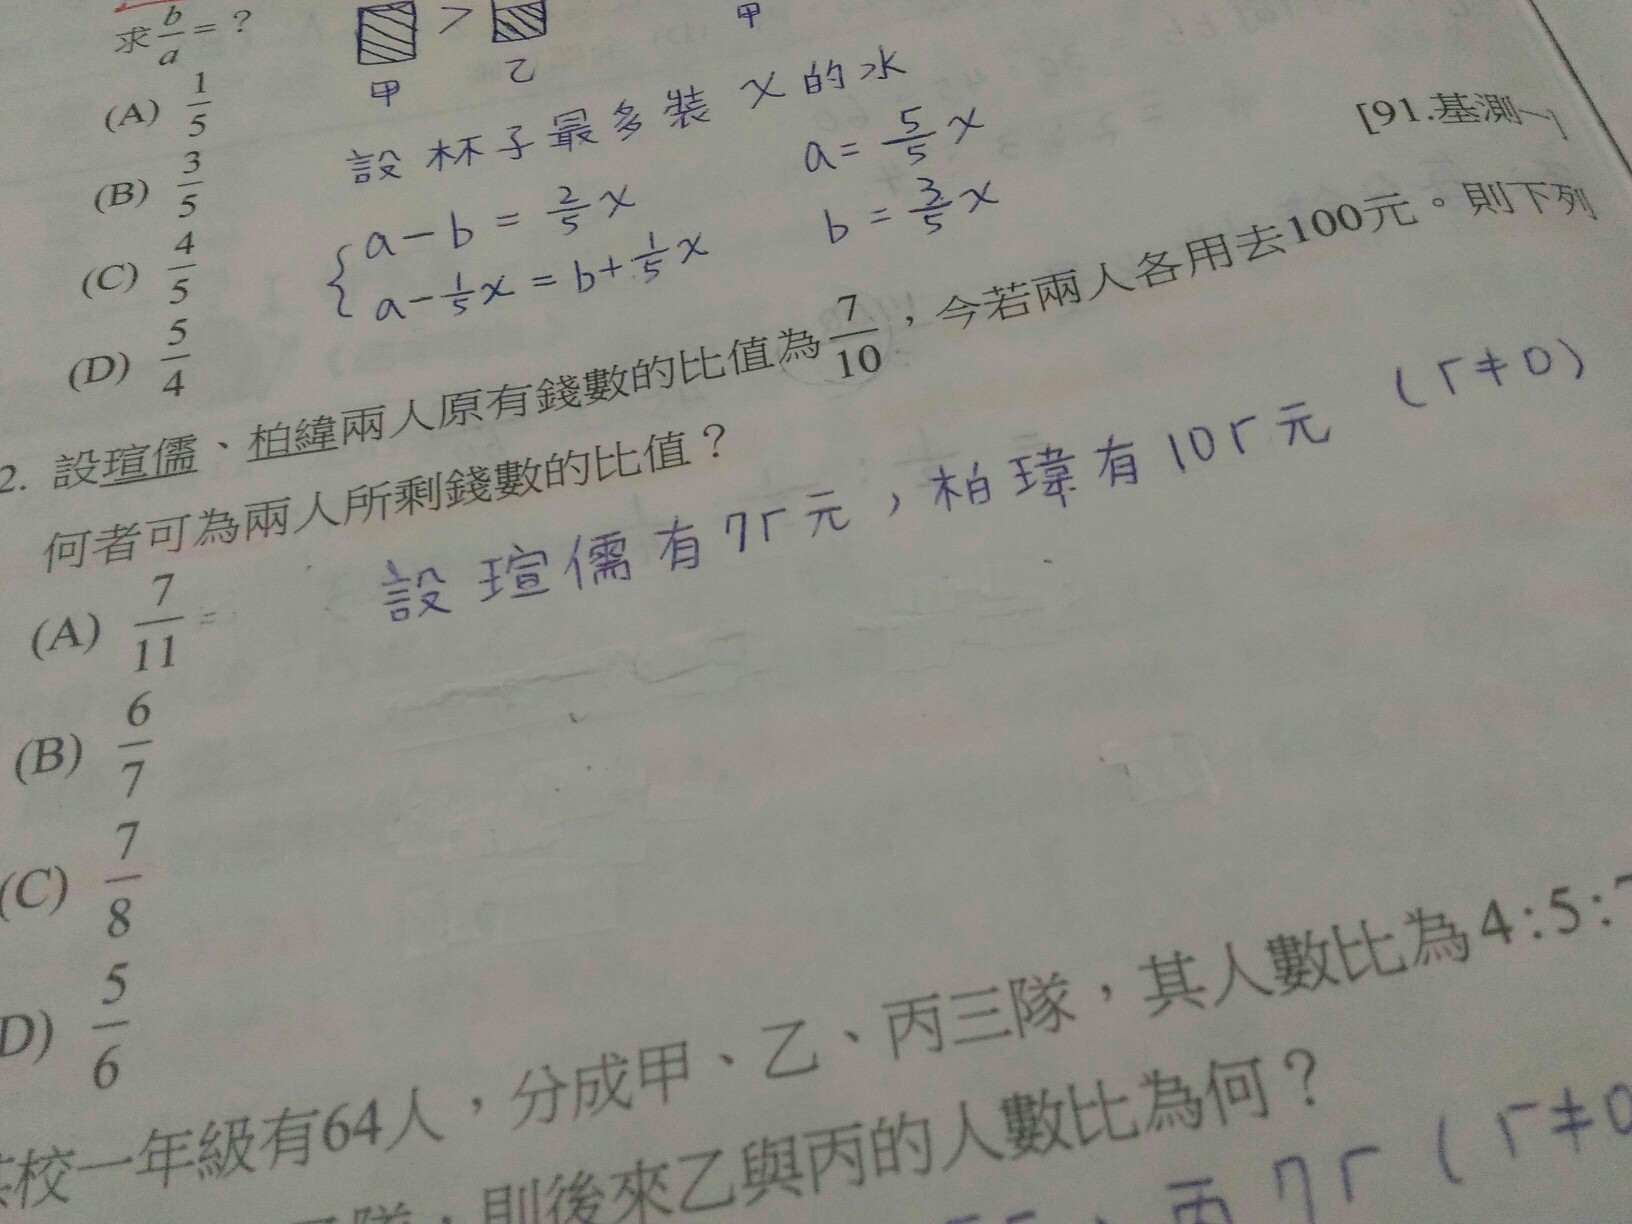 求b/a=?
甲 > 乙
甲
(A) 1/5
設杯子最多裝x的水
[91.基測一]
(B) 3/5
a-b=2/5x
a=5/5x
(C) 4/5
a-1/5x=b+1/5x
b=3/5x
(D) 5/4
2. 設瑄儒、柏緯兩人原有錢數的比值為7/10，今若兩人各用去100元。則下列
何者可為兩人所剩錢數的比值？
設瑄儒有7r元，柏瑋有10r元 (r≠0)
(A) 7/11 =
(B) 6/7
(C) 7/8
D) 5/6
校一年級有64人，分成甲、乙、丙三隊，其人數比為4:5:7
隊，則後來乙與丙的人數比為何？
丙7r (r≠0